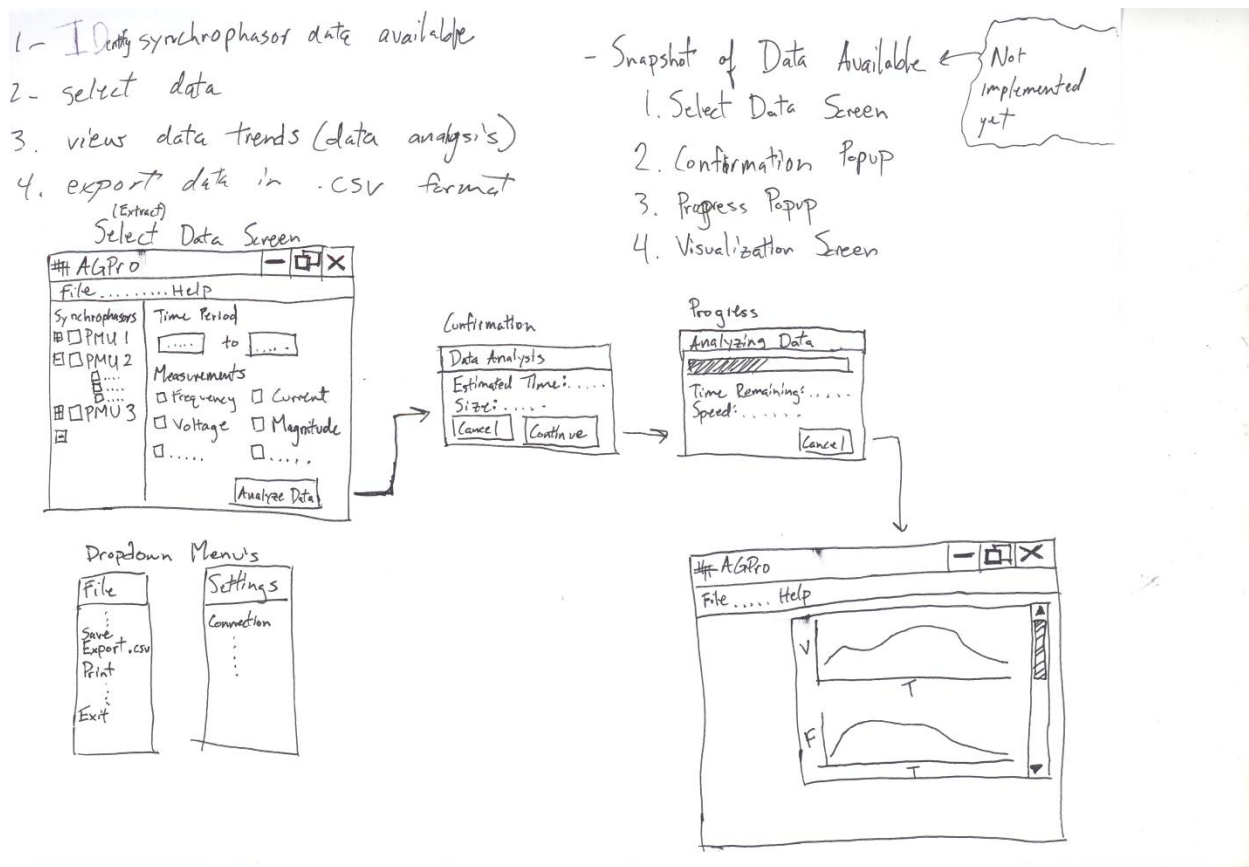 1- IDentify synchrophasor data available
2- select data
3. view data trends (data analysis)
4. export data in .CSV format
- Snapshot of Data Available
Not
implemented
yet
1. Select Data Screen
2. Confirmation Popup
3. Progress Popup
4. Visualization Screen
(Extract)
Select Data Screen
AGPro
File.........Help
Synchrophasors
PMU 1
PMU 2
....
....
....
PMU 3
Time Period
..... to .....
Measurements
Frequency
Current
Voltage
Magnitude
.....
.....
Analyze Data
Confirmation
Data Analysis
Estimated Time:.....
Size:.....
Cancel
Continue
Progress
Analyzing Data
Time Remaining:.....
Speed:......
Cancel
Dropdown Menu's
File
Save
Export.csv
Print
Exit
Settings
Connection
AGPro
File..... Help
V
T
F
T